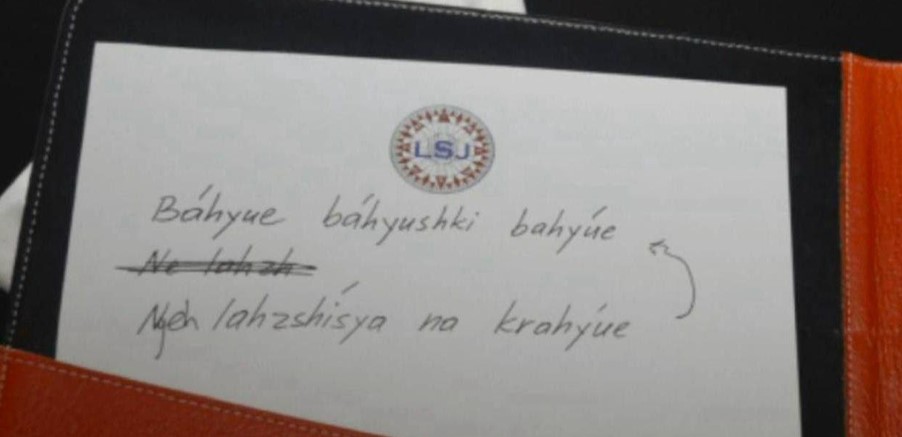 LSJ
Báhyue báhyushki bahyúe
Ne lahzh
lahzshísya na krahyúe